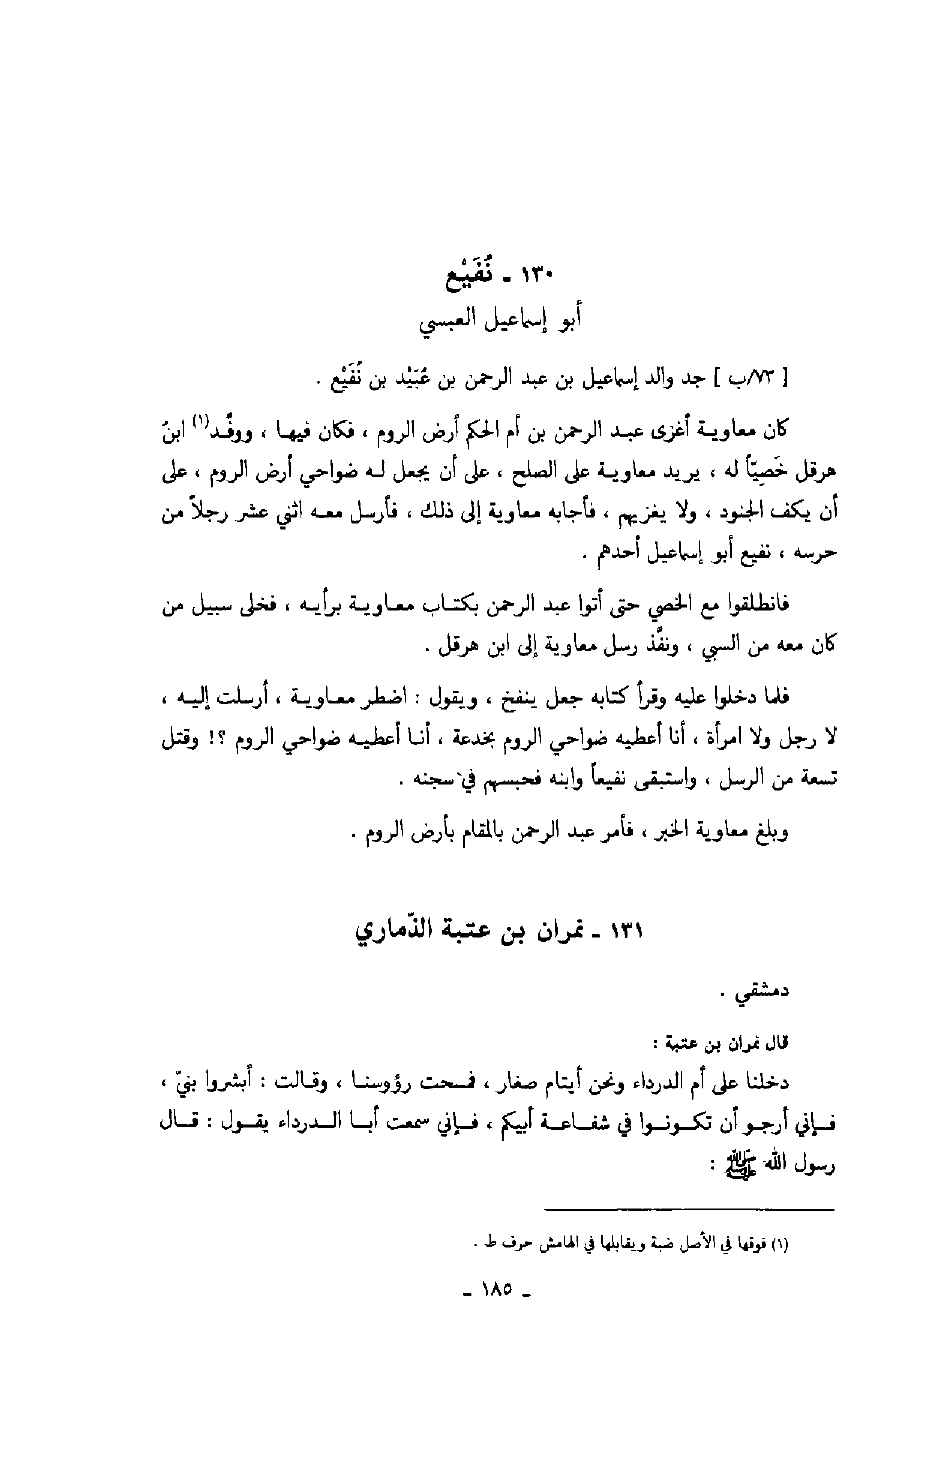 ١٣٠ ـ نُفَيْع
أبو إسماعيل العبسي
[ ٧٣/ب ] جد والد إسماعيل بن عبد الرحمن بن عُبَيْد بن نُفَيْع .
كان معاوية أغزى عبد الرحمن بن أم الحكم أرض الروم ، فكان فيها ، ووفَّد(١) ابنُ
هرقل خَصِيّاً له ، يريد معاوية على الصلح ، على أن يجعل له ضواحي أرض الروم ، على
أن يكف الجنود ، ولا يغزيهم ، فأجابه معاوية إلى ذلك ، فأرسل معه اثني عشر رجلاً من
حرسه ، نفيع أبو إسماعيل أحدهم .
فانطلقوا مع الخصي حتى أتوا عبد الرحمن بكتاب معاوية برأيه ، فخلى سبيل من
كان معه من السبي ، ونفَّذ رسل معاوية إلى ابن هرقل .
فلما دخلوا عليه وقرأ كتابه جعل ينفخ ، ويقول : اضطر معاوية ، أرسلت إليه ،
لا رجل ولا امرأة ، أنا أعطيه ضواحي الروم بخدعة ، أنا أعطيه ضواحي الروم ؟! وقتل
تسعة من الرسل ، واستبقى نفيعاً وابنه فحبسهم في سجنه .
وبلغ معاوية الخبر ، فأمر عبد الرحمن بالمقام بأرض الروم .
١٣١ ـ نمران بن عتبة الذّماري
دمشقي .
قال نمران بن عتبة :
دخلنا على أم الدرداء ونحن أيتام صغار ، فمسحت رؤوسنا ، وقالت : أبشروا بنيّ ،
فإني أرجو أن تكونوا في شفاعة أبيكم ، فإني سمعت أبا الدرداء يقول : قال
رسول الله ﷺ :
(١) فوقها في الأصل ضبة ويقابلها في الهامش حرف ط .
ـ ١٨٥ ـ